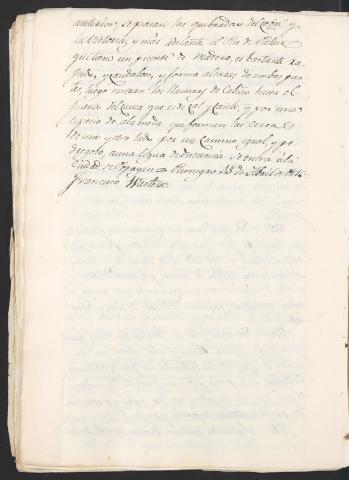 anterior, se pasan las quebradas del Cofre y
la Tetona, y mas adelante el Rio de Palacé
qe. tiene un puente de Madera, es bastante ra-
pido, y caudaloso, y forma alturas de ambas par-
tes, luego entran los llanuras de Calicio hasta el
puente del Cauca que es de Cal y Canto, y por una
especie de alameda que forman las cercas
de uno y otro lado por un Camino igual, y pe-
dregoso, a una legua de distancia se entra a la
Ciudad de Popayan = Rionegro 23 de Abril de 1815
Francisco